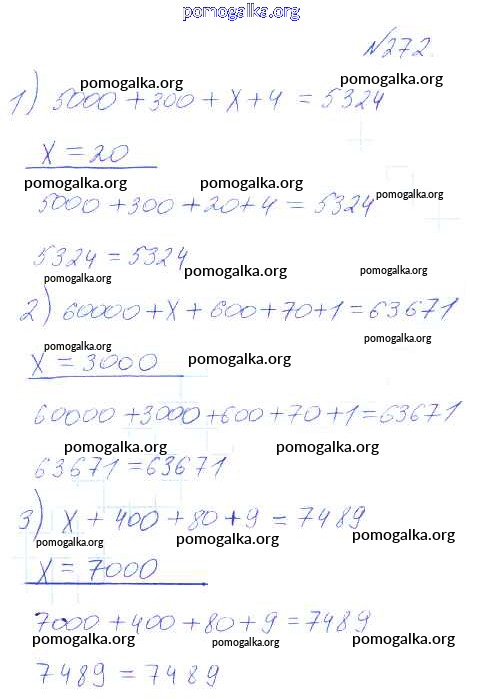 pomogalka.org
№272.
pomogalka.org pomogalka.org
1) 5000 + 300 + x + 4 = 5324
x = 20
pomogalka.org pomogalka.org pomogalka.org
5000 + 300 + 20 + 4 = 5324
5324 = 5324
pomogalka.org pomogalka.org pomogalka.org
2) 60000 + x + 600 + 70 + 1 = 63671
pomogalka.org pomogalka.org
x = 3000 pomogalka.org
60000 + 3000 + 600 + 70 + 1 = 63671
pomogalka.org pomogalka.org
63671 = 63671
3) x + 400 + 80 + 9 = 7489
pomogalka.org pomogalka.org pomogalka.org
x = 7000
7000 + 400 + 80 + 9 = 7489
pomogalka.org pomogalka.org pomogalka.org
7489 = 7489